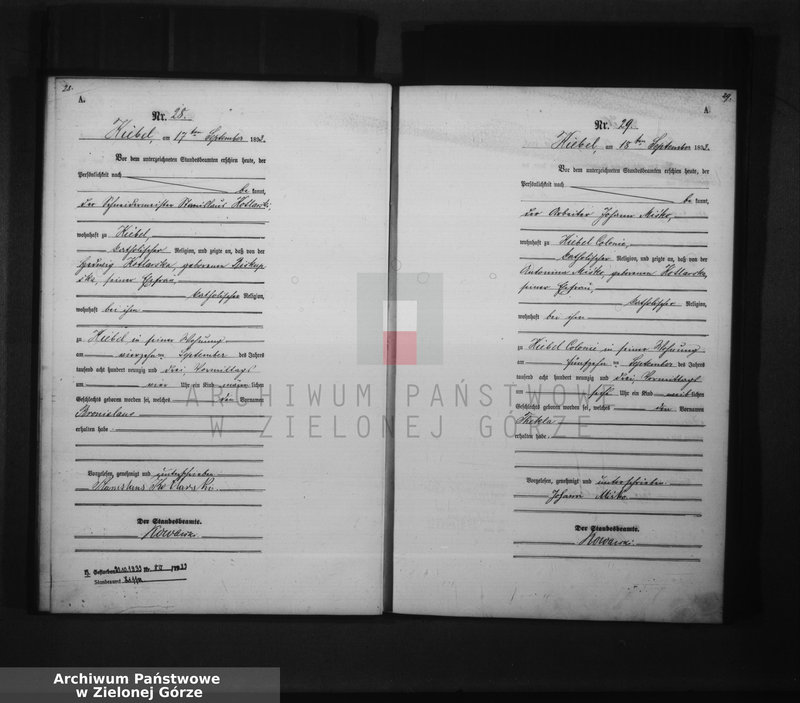 28.
A.
Nr. 28.
Kiebel, am 17ten September 1893.
Vor dem unterzeichneten Standesbeamten erschien heute, der
Persönlichkeit nach
be kannt,
der Schneidermeister Stanislaus Kotlarski,
wohnhaft zu Kiebel,
katholischer Religion, und zeigte an, daß von der
Hedwig Kotlarska, geborenen
seiner Ehefrau,
katholischer Religion,
wohnhaft bei ihm
zu Kiebel in seiner Wohnung
am vierzehn September des Jahres
tausend acht hundert neunzig und drei, Vormittags
um vier Uhr ein Kind männlichen
Geschlechts geboren worden sei, welches den Vornamen
Bronislaus
erhalten habe
Vorgelesen, genehmigt und unterschrieben
Stanislaus Kotlarski.
Der Standesbeamte.
Gestorben
Standesamt
29.
A
Nr. 29.
Kiebel, am 18ten September 1893.
Vor dem unterzeichneten Standesbeamten erschien heute, der
Persönlichkeit nach
be kannt,
der Arbeiter Johann Misko,
wohnhaft zu Kiebel Colonie,
katholischer Religion, und zeigte an, daß von der
Antonina Misko, geborenen Kotlarska
seiner Ehefrau,
katholischer Religion,
wohnhaft bei ihm
zu Kiebel Colonie in seiner Wohnung
am fünfzehn September des Jahres
tausend acht hundert neunzig und drei, Vormittags
um sechs Uhr ein Kind weiblichen
Geschlechts geboren worden sei, welches den Vornamen
Thekla
erhalten habe
Vorgelesen, genehmigt und unterschrieben
Johann Misko.
Der Standesbeamte.
ARCHIWUM PAŃSTWOWE
W ZIELONEJ GÓRZE
Archiwum Państwowe
w Zielonej Górze